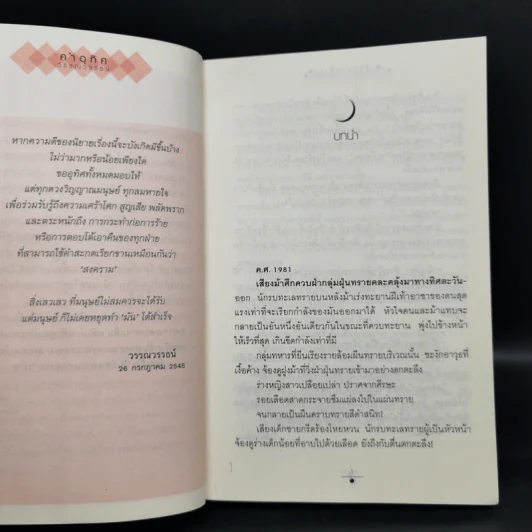 คำอุทิศ
หากความดีของนิยายเรื่องนี้จะบังเกิดมีขึ้นบ้าง
ไม่ว่ามากหรือน้อยเพียงใด
ขออุทิศทั้งหมดมอบให้
แต่ทุกดวงวิญญาณมนุษย์ ทุกลมหายใจ
เพื่อร่วมรับรู้ถึงความเศร้าโศก สูญเสีย พลัดพราก
และตระหนักถึง การกระทำก่อการร้าย
หรือการตอบโต้เอาคืนของทุกฝ่าย
ที่สามารถใช้คำสะกดเรียกขานเหมือนกันว่า
'สงคราม'
สิ่งเลวเลว ที่มนุษย์ไม่สมควรจะได้รับ
แต่มนุษย์ ก็ไม่เคยหยุดทำ 'มัน' ได้สำเร็จ
วรรณวรรธน์
26 กรกฎาคม 2548
บทนำ
ค.ศ. 1981
เสียงม้าศึกควบฝ่ากลุ่มฝุ่นทรายคละคลุ้งมาทางทิศตะวัน-
ออก นักรบทะเลทรายบนหลังม้าเร่งทะยานฝีเท้าอาชาของตนสุด
แรงเท่าที่จะเรียกกำลังของมันออกมาได้ หัวใจคนและม้าแทบจะ
กลายเป็นอันหนึ่งอันเดียวกันในขณะที่ควบทะยาน พุ่งไปข้างหน้า
ให้เร็วที่สุด เกินขีดกำลังเท่าที่มี
กลุ่มทหารที่ยืนเรียงรายล้อมผืนทรายบริเวณนั้น ชะงักอาวุธที่
เงื้อค้าง จ้องดูฝูงม้าที่วิ่งฝ่าฝุ่นทรายเข้ามาอย่างตกตะลึง
ร่างหญิงสาวเปลือยเปล่า ปราศจากศีรษะ
รอยเลือดสาดกระจายซึมแผ่ลงไปในแผ่นทราย
จนกลายเป็นผืนคราบทรายสีดำสนิท!
เสียงเด็กชายกรีดร้องโหยหวน นักรบทะเลทรายผู้เป็นหัวหน้า
จ้องดูร่างเด็กน้อยที่อาบไปด้วยเลือด ยังถึงกับตื่นตกตะลึง!